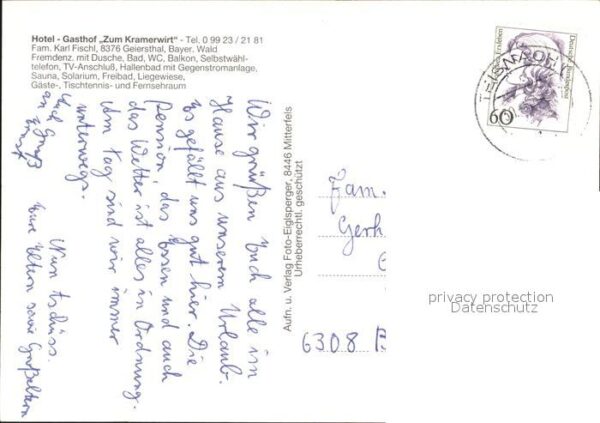 Hotel - Gasthof „Zum Kramerwirt“ - Tel. 0 99 23 / 21 81
Fam. Karl Fischl, 8376 Geiersthal, Bayer. Wald
Fremdenz. mit Dusche, Bad, WC, Balkon, Selbstwähl-
telefon, TV-Anschluß, Hallenbad mit Gegenstromanlage,
Sauna, Solarium, Freibad, Liegewiese,
Gäste-, Tischtennis- und Fernsehraum
Wir grüßen Euch alle im
Hause aus unserem Urlaub.
Es gefällt uns gut hier. Die
Pension, das Essen und auch
das Wetter ist alles in Ordnung.
Am Tag sind wir immer
unterwegs.
Nun tschüss.
Eure Eltern sowie Großeltern
Viel Gruß
an Ernst
Aufn. u. Verlag Foto-Eiglsperger, 8446 Mitterfels
Urheberrechtl. geschützt
Fam.
Gerh
6308 B
Deutsche Bundespost
60
TEISNACH
privacy protection
Datenschutz